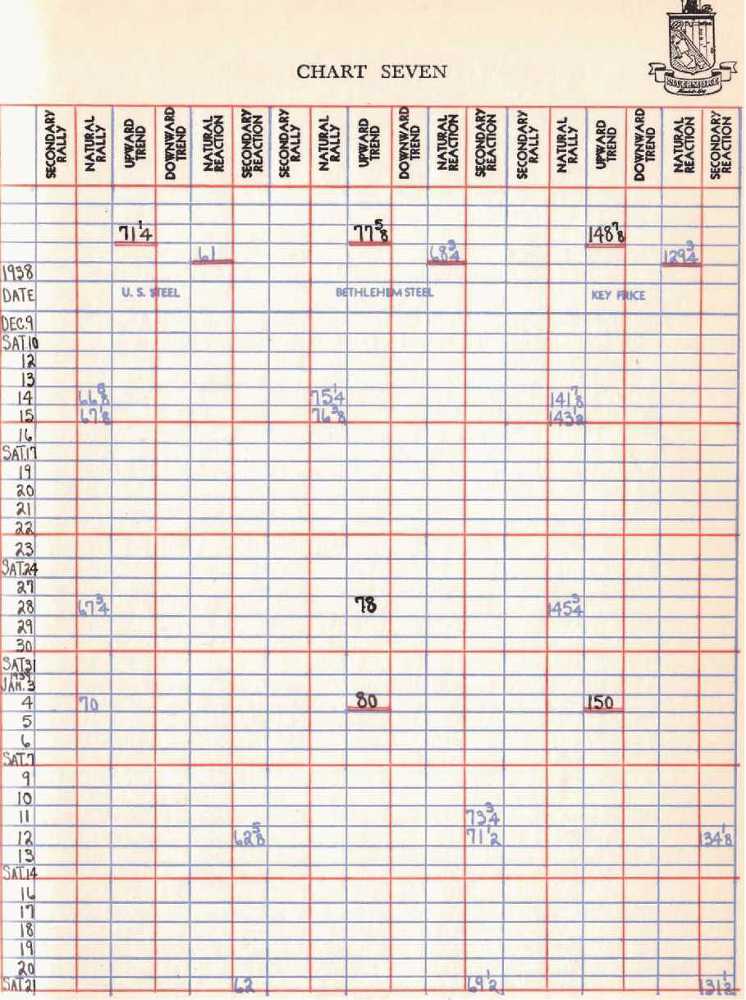 LIVERMORE
CHART SEVEN
SECONDARY RALLY NATURAL RALLY UPWARD TREND DOWNWARD TREND NATURAL REACTION SECONDARY REACTION SECONDARY RALLY NATURAL RALLY UPWARD TREND DOWNWARD TREND NATURAL REACTION SECONDARY REACTION SECONDARY RALLY NATURAL RALLY UPWARD TREND DOWNWARD TREND NATURAL REACTION SECONDARY REACTION
71 1/4 77 5/8 148 7/8
61 68 3/4 129 3/4
1938
DATE U. S. STEEL BETHLEHEM STEEL KEY PRICE
DEC.9
SAT.10
12
13
14 66 5/8 75 1/4 141 7/8
15 67 1/8 76 3/8 143 1/2
16
SAT.17
19
20
21
22
23
SAT.24
27
28 67 3/4 78 145 3/4
29
30
SAT.31
1939
JAN.3
4 70 80 150
5
6
SAT.7
9
10
11 73 3/4
12 62 5/8 71 1/2 134 1/8
13
SAT.14
16
17
18
19
20
SAT.21 62 69 1/2 131 1/2